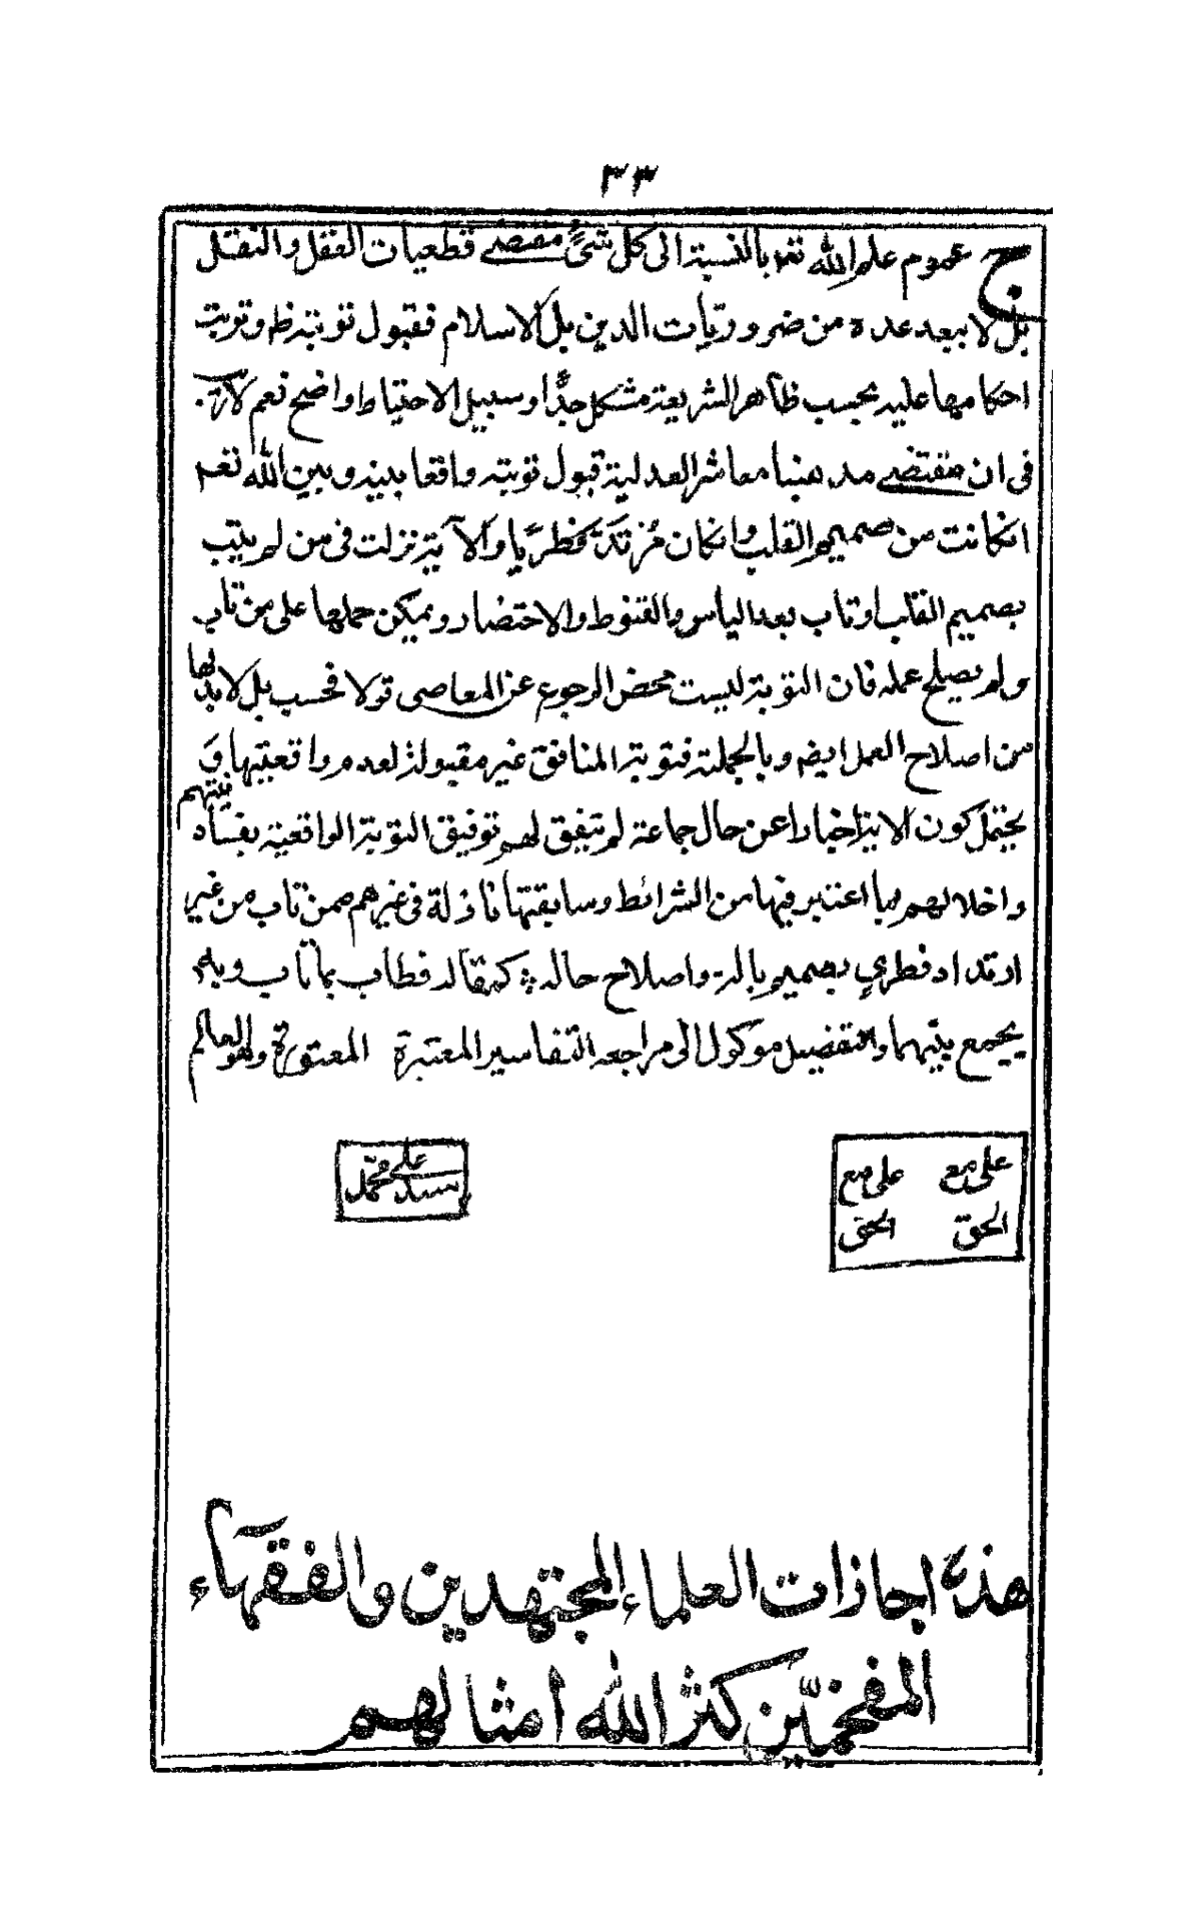 ٣٣
ج عموم علم الله تعم بالنسبة الى كل شئ مقتضى قطعيات العقل والنقل
بل لا يبعد عده من ضروريات الدين بل الاسلام فقبول توبته ظم وترتب
احكامها عليه بحسب ظاهر الشريعة مشكل جدًّا وسبيل الاحتياط واضح نعم لا ريب
فى ان مقتضى مذهبنا معاشر العدلية قبول توبته واقعا بينه وبين الله تعم
انكانت من صميم القلب وانكان مرتدّ بحظريا والآية نزلت فى من لم يتب
بصميم القلب اوتاب بعد الياس والقنوط والاحتضار ويمكن حملها على من تاب
ولم يصلح عمله فان التوبة ليست محض الرجوع عن المعاصى قولا فحسب بل لا بد لها
من اصلاح العمل ايضم وبالجملة فتوبة المنافق غير مقبولة لعدم واقعيتها وَ
يحتمل كون الاية اخبارا عن حال جماعة لم يتفق لهم توفيق التوبة الواقعية بفساد نيتهم
واخلالهم بما اعتبر فيها من الشرائط وسابقتها نازلة فى غيرهم ممن تاب من غير
ارتداد فطري بصميم باله واصلاح حاله كمقاله فطاب بما تاب وبه
يجمع بينهما والتفضيل موكول الى مراجعه التفاسير المعتبرة المعتورة وهو العالم
على مع على مع
الحق الحق
سيد على محمّد
هذه اجازات العلماء المجتهدين والفقهاء
المفخميّن كثر الله امثالهم